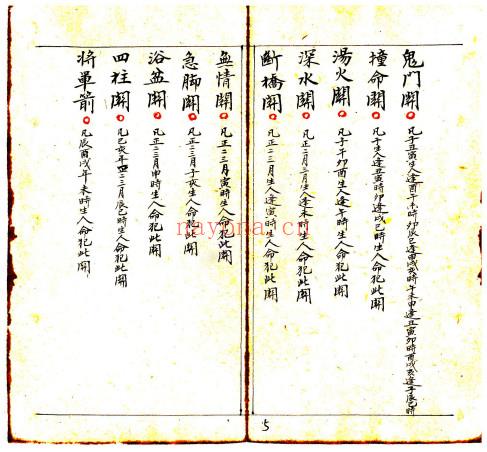 鬼门關 凡子丑寅生人逢酉午未時卯辰巳逢申戌亥時午未申逢丑寅卯時酉戌亥逢子辰巳時
撞命關 凡子生人逢丑寅時卯逢戌巳時生人命犯此關
湯火關 凡子午卯酉生人逢午時生人命犯此關
深水關 凡正月二月三月生人逢未時生人命犯此關
斷橋關 凡正二三月生人逢寅時生人命犯此關
無情關 凡正二三月寅時生人命犯此關
急脚關 凡正二三月子亥生人命犯此關
浴盆關 凡正二三月申時生人命犯此關
四柱關 凡巳亥年二三月辰巳時生人命犯此關
将軍箭 凡辰酉戌年未時生人命犯此關
naypna.cn
5